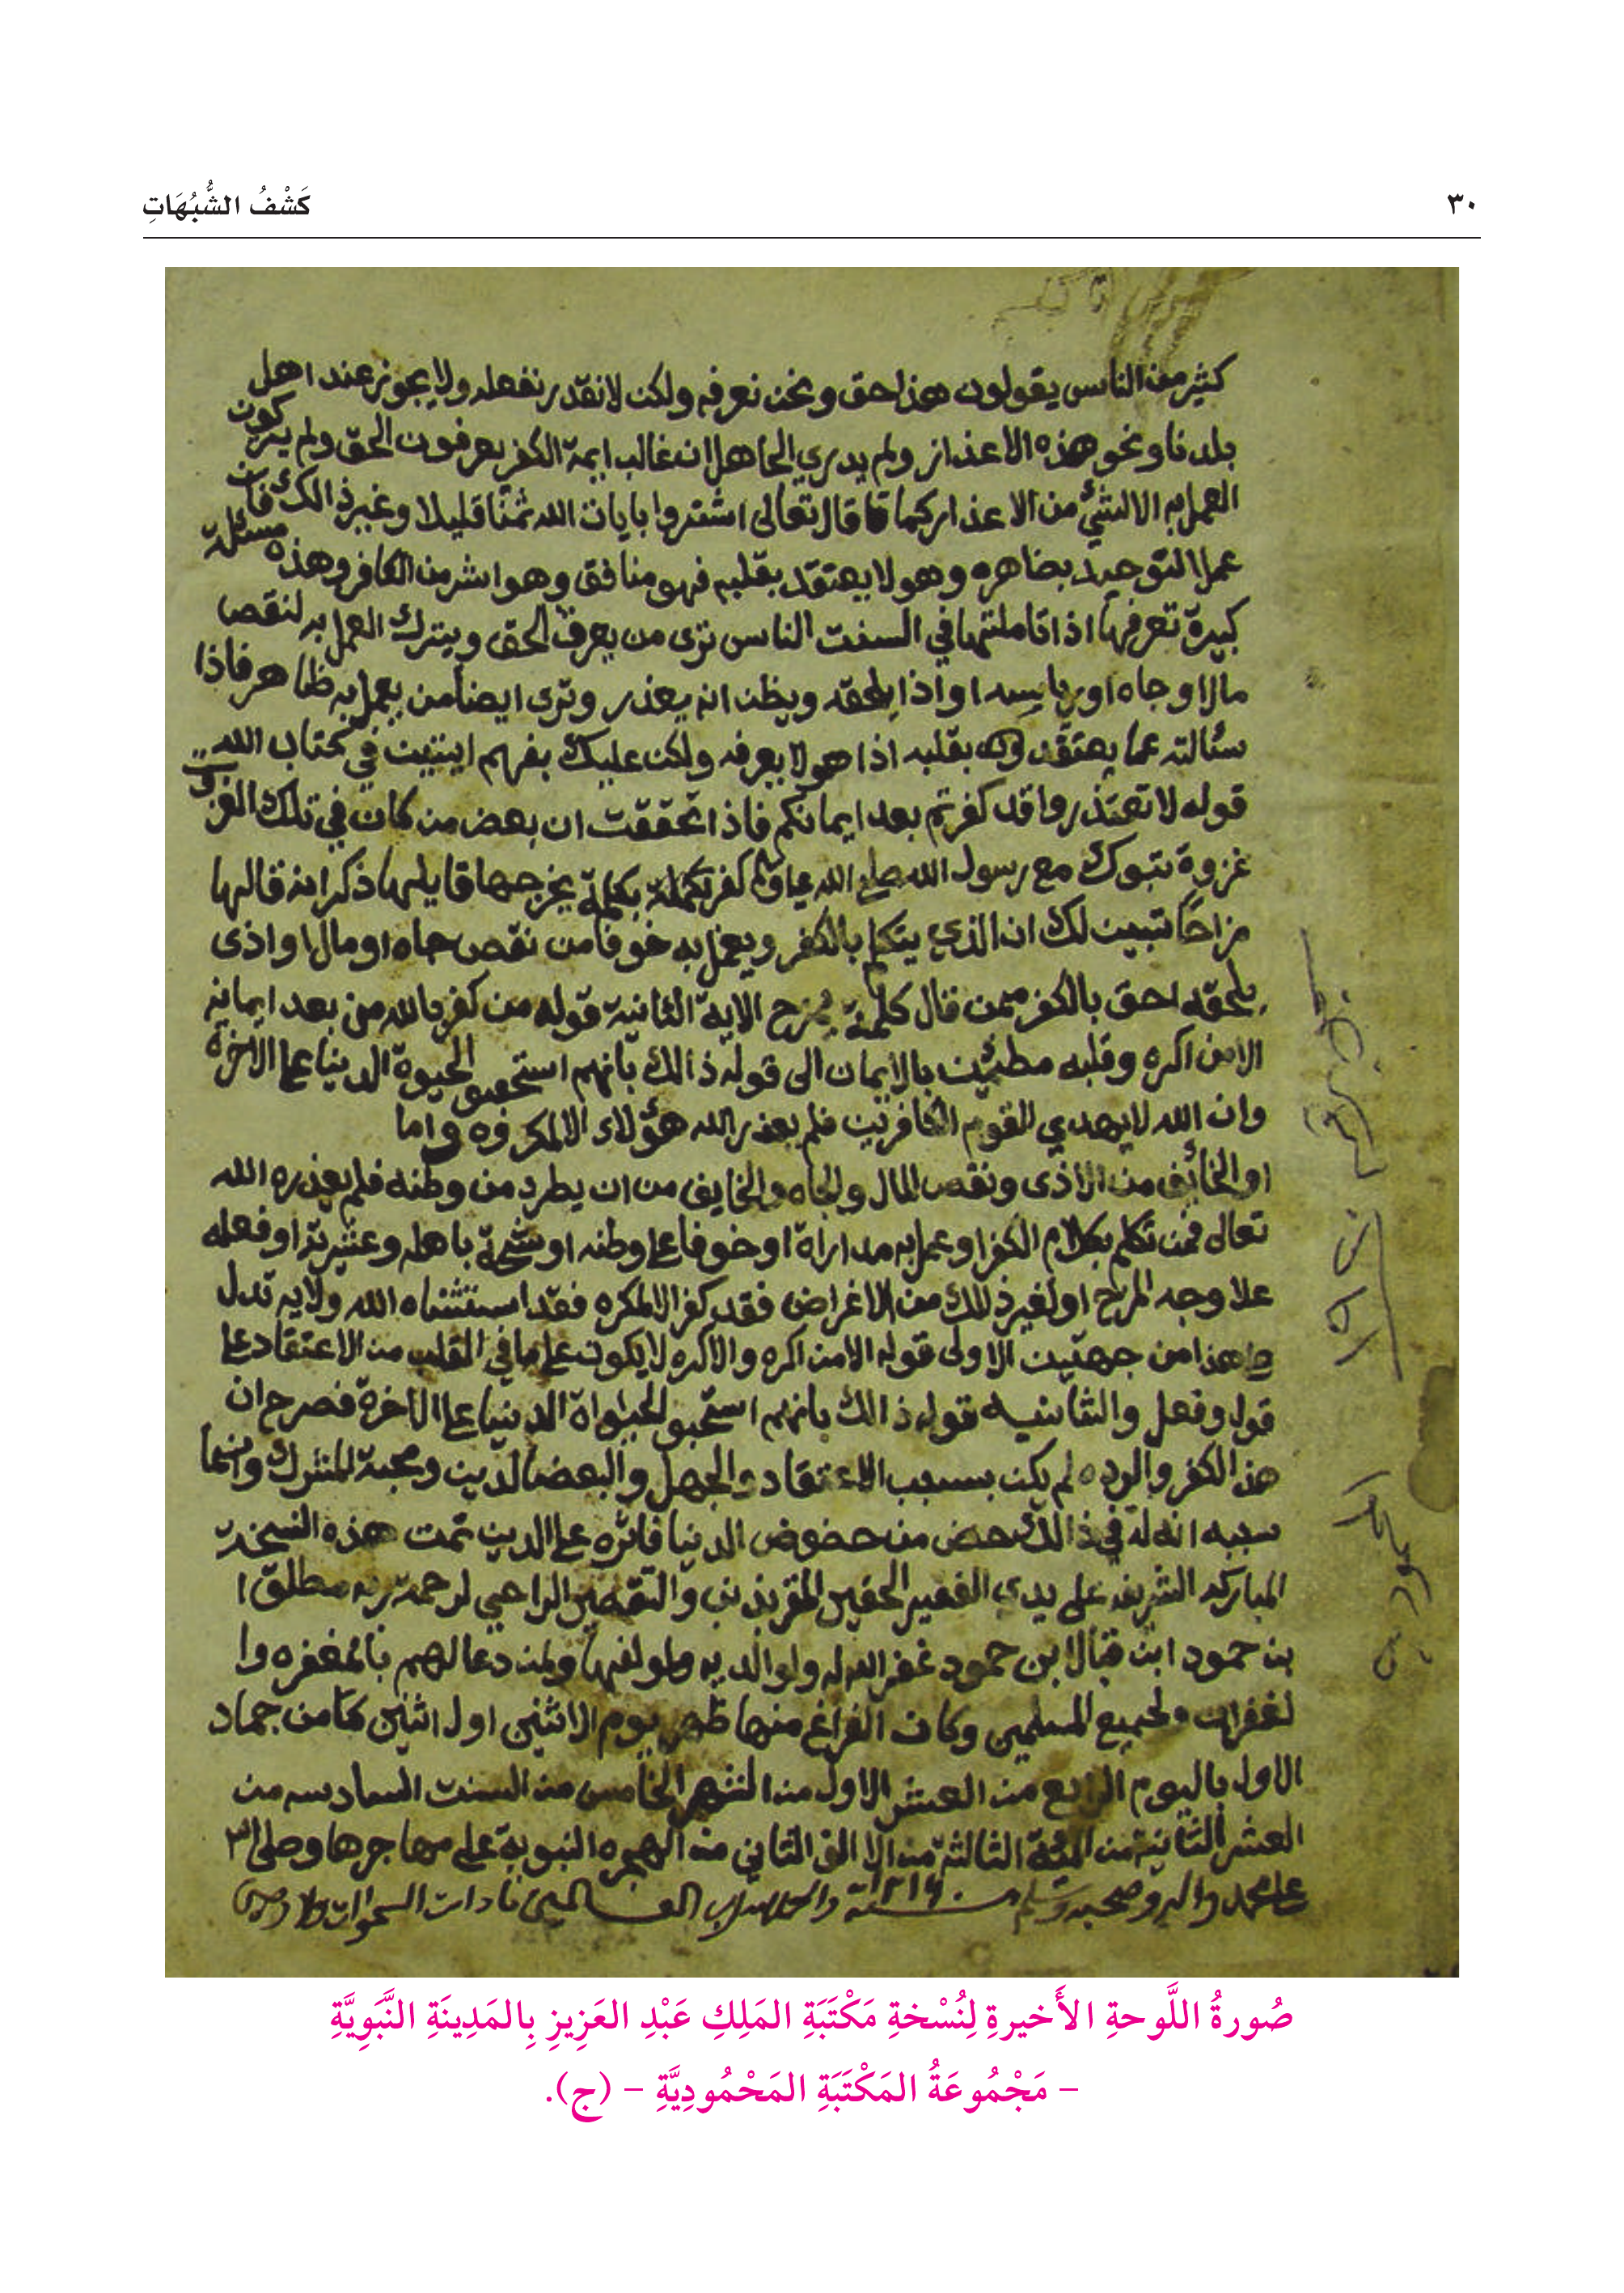 ٣٠
كَشْفُ الشُّبُهَاتِ
كثير من الناس يقولون هذا حق ونحن نعرفه ولكن لا نقدر نفعله ولا يجوز عند اهل
بلدنا ونحو هذه الاعذار ولم يدري الجاهل ان غالب ايمة الكفر يعرفون الحق ولم يتركون
العمل به الا لشئ من الاعذار كما قا قال تعالى اشتروا بايات الله ثمنا قليلا وغير ذالك فان
عمل التوحيد بضاهره وهو لا يعتقد بقلبه فهو منافق وهو اشر من الكافر وهذه مسئلة
كبيرة تعرفها اذا تاملتها في السنت الناس ترى من يعرف الحق ويترك العمل به لنقص
مال او جاه او رياسه او اذا يلحقه ويظن انه يعذر وترى ايضا من يعمل به ظاهر فاذا
سئالته عما يعتقد بقلبه اذا هو لا يعرفه ولكن عليك بفهم ايتين في كتاب الله
قوله لا تعتذروا قد كفرتم بعد ايمانكم فاذا تحققت ان بعض من كان في تلك الغزوت
غزوة تبوك مع رسول الله صلى الله عليه كفر بكلمة يخرجها قايلها ذكر انه قالها
مزاحًا تبين لك ان الذي يتكلم بالكفر ويعمل به خوفا من نقص جاه او مال او اذى
يلحقه احق بالكفر ممن قال كلمة يمزح الاية الثانية قوله من كفر بالله من بعد ايمانه
الا من اكره وقلبه مطمئن بالايمان الى قوله ذالك بانهم استحبو الحيوة الدنيا على الاخرة
وان الله لا يهدي القوم الكافرين فلم يعذر الله هؤلاء الا المكروه واما
او الخائف من الاذى ونقص المال والجاه والخايف من ان يطرد من وطنه فلم يعذره الله
تعالى فمن تكلم بكلام الكفر او عمل به مداراة او خوفا على وطنه او شحة باهله وعشيرته او فعله
علا وجه المزح او لغير ذلك من الاغراض فقد كفر الا المكره فقد استثناه الله والايه تدل
على هذا من جهتين الاولى قوله الا من اكره والاكره لا يكون على ما في القلب من الاعتقاد على
قول وفعل والثانيه قوله ذالك بانهم استحبو الحيواة الدنيا على الاخرة فصرح ان
هذ الكفر والرده لم يكن بسبب الاعتقاد والجهل والبعض الدين ومحبة الشرك وانما
سببه انه له في ذالك حض من حضوض الدنيا فاثره على الدين تمت هذه النسخه
المباركه الشريفه على يدي الفقير الحقير المقر بذنب والتقصير الراجي لرحمة ربه مطلق ا
بن حمود ابن قبال ابن حمود غفر الله له ولوالديه ولمولفها ولمن دعا لهم بالمغفره وا
لغفران ولجميع المسلمين وكان الفراغ منها ظهر يوم الاثنين اول اثنين كا من جماد
الاول باليوم الرابع من العشر الاول من الشهر الخامس من السنت السادسه من
العشر الثانية من المئة الثالثة من الالف الثاني من الهجره النبوية على مهاجرها وصلى ا
على محمد واله وصحبه وسلم سنة ١٢١٦
صُورةُ اللَّوحةِ الأَخيرةِ لِنُسْخةِ مَكْتَبَةِ المَلِكِ عَبْدِ العَزِيزِ بِالمَدِينَةِ النَّبَوِيَّةِ
– مَجْمُوعَةُ المَكْتَبَةِ المَحْمُودِيَّةِ – (ج).